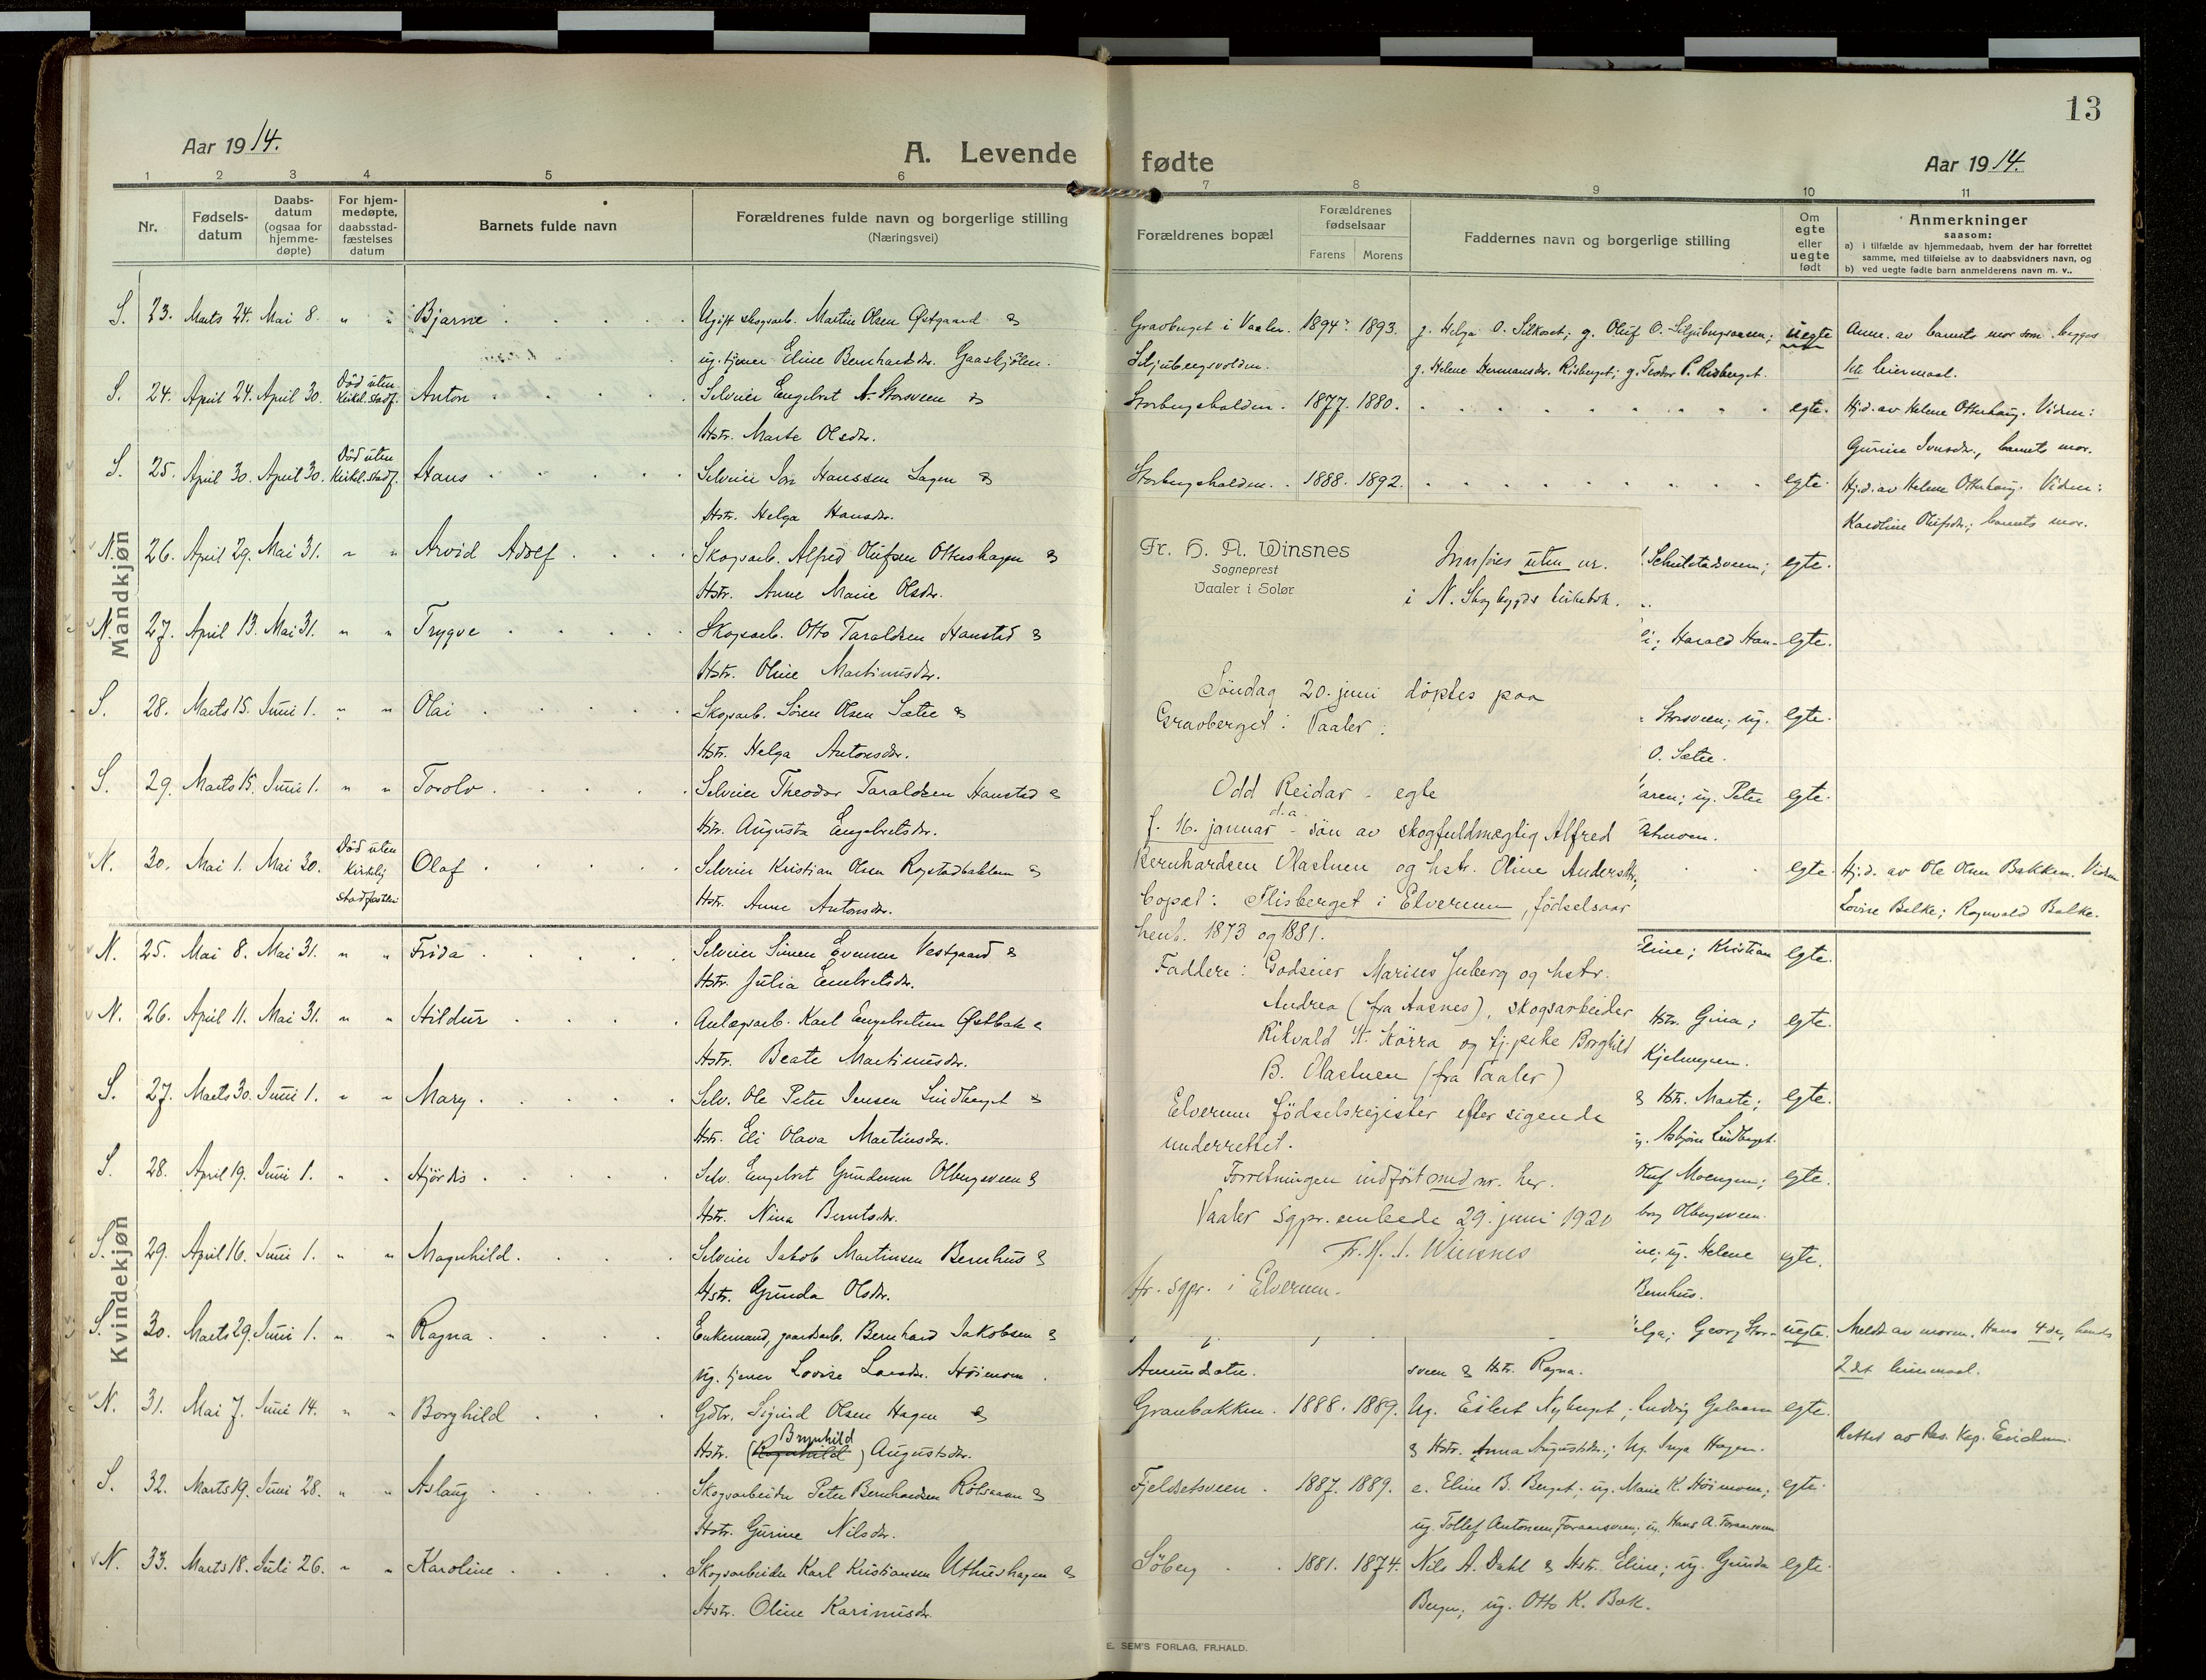 13
Aar 1914.
A. Levende fødte
Aar 1914.
1 2 3 4 5 6 7 8 9 10 11
Nr.
Fødsels-
datum
Daabs-
datum
(ogsaa for
hjemme-
døpte)
For hjem-
medøpte,
daabsstad-
fæstelses
datum
Barnets fulde navn
Forældrenes fulde navn og borgerlige stilling
(Næringsvei)
Forældrenes bopæl
Forældrenes
fødselsaar
Farens Morens
Faddernes navn og borgerlige stilling
Om
egte
eller
uegte
født
Anmerkninger
saasom:
a) i tilfælde av hjemmedaab, hvem der har forrettet
samme, med tilføielse av to daabsvidners navn, og
b) ved uegte fødte barn anmelderens navn m. v..
Mandkjøn
S. 23. Marts 24. Mai 8. " " Bjarne Ugift skogsarb. Martin Olsen Østgaard &
ug. tjener Eline Bernhardsdr. Gaaskjølen.
Gravberget i Vaaler. 1894. 1893. g. Helga O. Silkoset; g. Oluf O. uegte Anm. av barnets mor som begges
g. Helene Hermansdr. Risberget; g. Teodor P. Risberget. 1ste leiermaal.
S. 24. April 24. April 30. Død uten kirkel. stadf. Anton Selveier Engebret A. Storsveen &
Hstr. Marte Olsdr.
Storbergshalden. 1877. 1880. egte. Hj.d. av Helene Otterhaug. Vidner:
Gurine Ivarsdr., barnets mor.
S. 25. April 30. April 30. Død uten kirkel. stadf. Hans Selveier Jon Hanssen Lagen &
Hstr. Helga Hansdr.
Storbergshalden. 1888. 1892. egte. Hj.d. av Helene Otterhaug. Vidner:
Karoline Olufsdr.; barnets mor.
N. 26. April 29. Mai 31. " " Arvid Adolf Skogsarb. Alfred Olufsen Ottershagen &
Hstr. Anne Marie Olsdr.
Schulstadsveen; egte.
N. 27. April 13. Mai 31. " " Trygve Skogsarb. Otto Taraldsen Hanstad &
Hstr. Oline Martinusdr.
Harald Han- egte.
S. 28. Marts 15. Juni 1. " " Olai Skogsarb. Søren Olsen Sætre &
Hstr. Helga Antonsdr.
Storsveen; ug. egte.
O. Sætre.
S. 29. Marts 15. Juni 1. " " Torolv Selveier Theodor Taraldsen Hanstad &
Hstr. Augusta Engebretsdr.
aren; ug. Peter egte.
N. 30. Mai 1. Mai 30. Død uten kirkelig stadfæstelse Olaf Selveier Kristian Olsen Rogstadbakken &
Hstr. Anne Antonsdr.
egte. Hj.d. av Ole Olsen Bakken. Vidner
Lovise Balke; Ragnvald Balke.
Kvindekjøn
N. 25. Mai 8. Mai 31. " " Frida Selveier Simen Evensen Vestgaard &
Hstr. Julia Embretsdr.
Eline; Kristian egte.
N. 26. April 11. Mai 31. " " Hildur Anlægsarb. Karl Engebretsen Østbak &
Hstr. Beate Martinusdr.
Hstr. Gina; egte.
S. 27. Marts 30. Juni 1. " " Mary Selv. Ole Peter Jensen Lindberget &
Hstr. Eli Olava Martinsdr.
& Hstr. Marte; egte.
Asbjørn Lindberget.
S. 28. April 19. Juni 1. " " Hjørdis Selv. Engebret Gundersen Olbergsveen &
Hstr. Nina Berntsdr.
Moengen; egte.
Olbergsveen.
S. 29. April 16. Juni 1. " " Magnhild Selveier Jakob Martinsen Bernhus &
Hstr. Gunda Olsdr.
ug. Helene egte.
Bernhus.
S. 30. Marts 29. Juni 1. " " Ragna Enkemand, gaardsarb. Bernhard Jakobsen &
ug. tjener Lovise Larsdr. Høimoen.
Helga; Georg Stor- uegte. Meldt av moren. Hans 4de, hendes
sveen & Hstr. Ragna. 2det leiermaal.
N. 31. Mai 7. Juni 14. " " Borghild Gdbr. Sigurd Olsen Hagen &
Hstr. (Ragnhild) Brynhild Augustsdr.
Granbakken. 1888. 1889. Ug. Eilert Nyberget; Ludvig egte.
& Hstr. Anna Augustsdr.; Ug. Inga Hagen. Rettet av Res. Kap. Evidum
S. 32. Marts 19. Juni 28. " " Aslaug Skogsarbeider Peter Bernhardsen Rötsaaen &
Hstr. Gurine Nilsdr.
Fjeldsetsveen. 1887. 1889. e. Eline B. Berget; ug. Marie K. Høimoen; egte.
ug. Tollef Antonsen
N. 33. Marts 18. Juli 26. " " Karoline Skogsarbeider Karl Kristiansen Uthushagen &
Hstr. Oline Karinusdr.
Söberg 1881. 1874. Nils A. Dahl & Hstr. Eline; ug. Gunda egte.
Berger; ug. Otto K. Bak.
Fr. H. A. Winsnes
Sogneprest
Vaaler i Solør
Innføres uten nr.
i N. Skogbygds kirkebok.
Söndag 20. juni döptes paa
Gravberget i Vaaler:
Odd Reidar - egte
f. 16. januar d.a. - sön av skogfuldmægtig Alfred
Bernhardsen Olastuen og hstr. Oline Andersdtr,
bopæl: Flisberget i Elverum, födselsaar
henh. 1873 og 1881.
Faddere: Godseier Marius Juberg og hstr.
Andrea (fra Aasnes), skogsarbeider
Rikvald H. Körra og tj.pike Borghild
B. Olastuen (fra Vaaler)
Elverum födselsregister efter sigende
underrettet.
Forretningen indfört med nr. her.
Vaaler sgpr.embede 29. juni 1920
Fr. H. A. Winsnes
Hr. sgpr. i Elverum.
E. SEM'S FORLAG, FR.HALD.